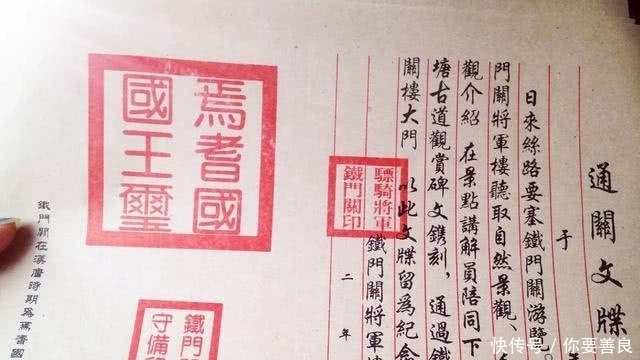 通關文牒
于
日來絲路要塞鐵門關游覽。
門關將軍樓聽取自然景觀、
觀介紹 在景點講解員陪同下
塘古道觀賞碑文鐫刻，通過鐵
關樓大門 以此文牒留為紀念
鐵門關將軍
二 年
驃騎將軍
鐵門關印
焉耆國
國王璽
鐵門
守備
鐵門關在漢唐時期為焉耆國
快传号／你要善良